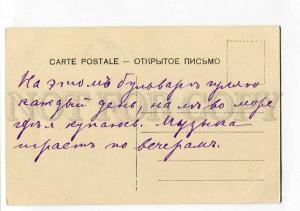 CARTE POSTALE — ОТКРЫТОЕ ПИСЬМО
На этомъ бульварѣ гуляю
каждый день, на лѣво море
гдѣ я купаюсь. Музыка
играетъ по вечерамъ.